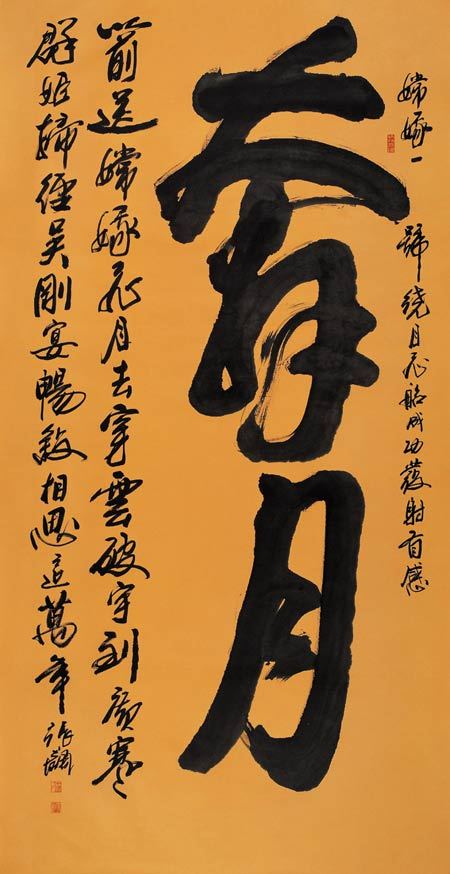 嫦娥一號繞月飛船成功發射有感
奔月
箭送嫦娥飛月去穿雲破宇到廣寒
群經吴剛宴暢敘相思這萬年
張